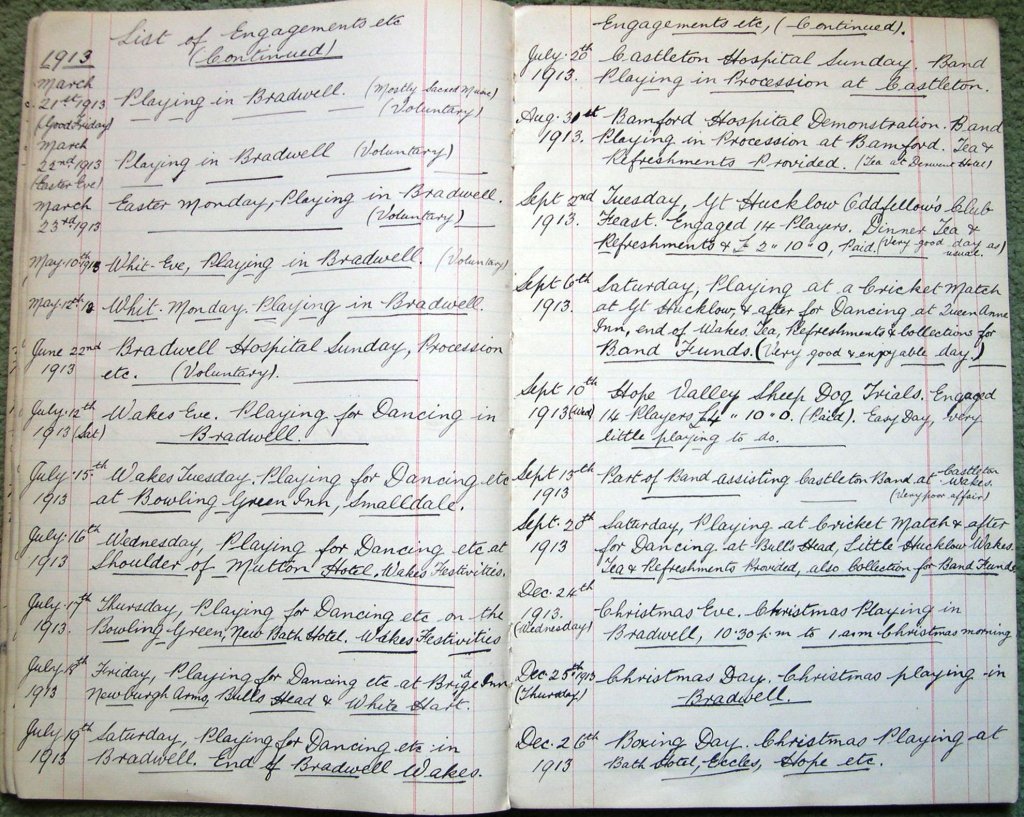 List of Engagements etc
(Continued)
1913
March
21st 1913 Playing in Bradwell. (Mostly Sacred Music)
(Good Friday) (Voluntary)
March
22nd 1913 Playing in Bradwell (Voluntary)
(Easter Eve)
March Easter Monday, Playing in Bradwell.
23rd 1913 (Voluntary)
May 10th 1913 Whit-Eve, Playing in Bradwell. (Voluntary)
May 12th 13 Whit. Monday. Playing in Bradwell.
June 22nd Bradwell Hospital Sunday, Procession
1913 etc. (Voluntary).
July 12th Wakes Eve. Playing for Dancing in
1913 (Sat) Bradwell.
July 15th Wakes Tuesday, Playing for Dancing etc
1913 at Bowling Green Inn, Smalldale.
July 16th Wednesday, Playing for Dancing etc at
1913 Shoulder of Mutton Hotel. Wakes Festivities.
July 17th Thursday, Playing for Dancing etc on the
1913. Bowling-Green, New Bath Hotel. Wakes Festivities
July 18th Friday, Playing for Dancing etc at Bridge Inn
1913 Newburgh Arms, Bulls Head & White Hart.
July 19th Saturday, Playing for Dancing etc in
1913 Bradwell. End of Bradwell Wakes.
Engagements etc, (Continued).
July 20th Castleton Hospital Sunday. Band
1913. Playing in Procession at Castleton.
Aug. 31st Bamford Hospital Demonstration. Band
1913. Playing in Procession at Bamford. Tea &
Refreshments Provided. (Tea at Derwent Hotel)
Sept 2nd Tuesday, Gt Hucklow Oddfellows Club
1913. Feast. Engaged 14 Players. Dinner Tea &
Refreshments & £ 2 " 10 " 0, Paid. (Very good day as usual.)
Sept 6th Saturday, Playing at a Cricket Match
1913. at Gt Hucklow, & after for Dancing at Queen Anne
Inn, end of Wakes. Tea, Refreshments & Collections for
Band Funds. (Very good & enjoyable day.)
Sept 10th Hope Valley Sheep Dog Trials. Engaged
1913 (Wed) 14 Players £4 " 10 " 0. (Paid). Easy Day, very
little playing to do.
Sept 13th Part of Band assisting Castleton Band at Castleton Wakes.
1913 (Very poor affair)
Sept. 28th Saturday, Playing at Cricket Match & after
1913 for Dancing at Bull's Head, Little Hucklow Wakes.
Tea & Refreshments Provided, also Collection for Band Funds
Dec. 24th
1913. Christmas Eve. Christmas Playing in
(Wednesday) Bradwell, 10.30 p.m to 1 a.m Christmas morning
Dec 25th 1913 Christmas Day. Christmas playing in
(Thursday) Bradwell.
Dec. 26th Boxing Day. Christmas Playing at
1913 Bath Hotel, Eccles, Hope etc.